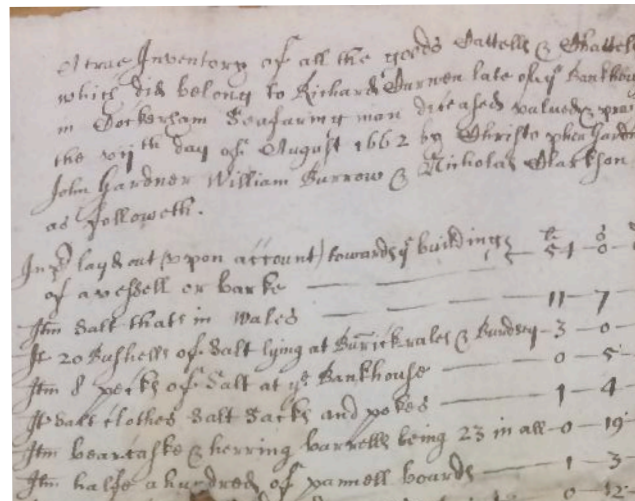 A true Inventory of all the goods Cattells & Chattell
which did belong to Richard Curwen late of ye Bankhou
in Cockerham Seafaring man diceased valued & pray
the vijth day of August 1662 by Christopher Gardn
John Gardner William Burrow & Nicholas Clarkson
as followeth.
Inpr layd out (vpon account) towards ye building
of a vessell or barke — 51 – 0
Itm Salt thats in Wales — 11 – 7
It 20 Bushells of Salt lying at & – 3 – 0
Itm 8 pecks of Salt at ye Bankhouse — 0 – 5
It Salt clothes Salt Sacks and pokes — 1 – 4
Itm bearcaske & herring barrells being 23 in all – 0 – 19
Itm halfe a hundred of pannell boards — 1 3
0 – 12